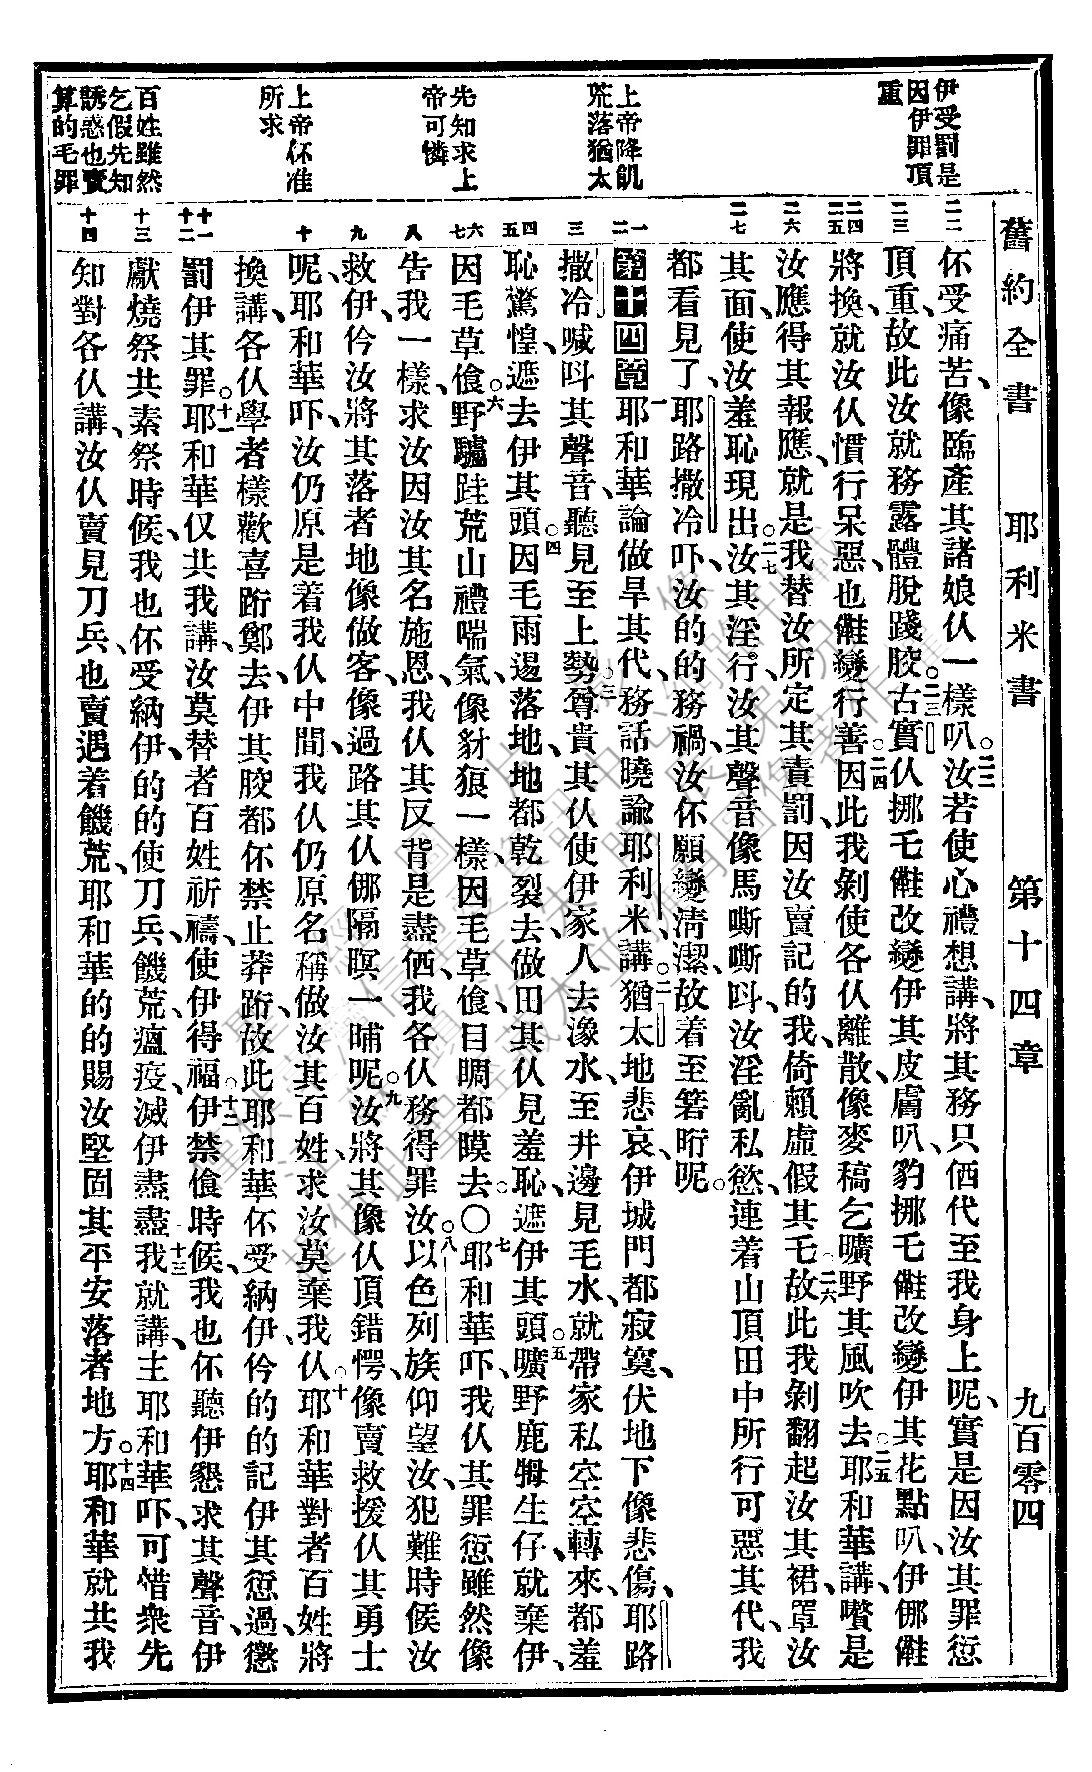 舊約全書 耶利米書 第十四章 九百零四
伊受罰是
因伊罪頂
重
上帝降飢
荒落猶太
先知求上
帝可憐
上帝伓准
所求
百姓雖然
乞假先知
誘惑也賣
算的毛罪
伓受痛苦、像臨產其諸娘仈一樣叭。二二汝若使心禮想講、將其務只価代至我身上呢、實是因汝其罪愆
頂重、故此汝就務露體脫踐骹。二三古實仈挪乇雔改變伊其皮膚叭、豹挪乇雔改變伊其花點叭、伊倻雔
將換、就汝仈慣行呆惡、也雔變行善。二四因此我剝使各仈離散、像麥稿乞曠野其風吹去。二五耶和華講、嚽是
汝應得其報應、就是我替汝所定其責罰、因汝賣記的我、倚賴虛假其乇。二六故此我剝翻起汝其裙、罩汝
其面、使汝羞恥現出。二七汝其淫行、汝其聲音像馬嘶嘶叫、汝淫亂私慾、連着山頂田中所行可惡其代、我
都看見了、耶路撒冷吓、汝的的務禍、汝伓願變清潔、故着至箬晍呢。
第十四章 一耶和華論做旱其代、務話曉諭耶利米講。二猶太地悲哀、伊城門都寂寞、伏地下像悲傷、耶路
撒冷喊叫其聲音、聽見至上。三勢尊貴其仈使伊家人去潒水、至井邊見毛水、就帶家私空空轉來、都羞
恥驚惶、遮去伊其頭。四因毛雨遏落地、地都乾裂去、做田其仈見羞恥、遮伊其頭。五曠野鹿𤙩生仔、就棄伊、
因毛草飧。六野驢跬荒山禮喘氣、像豺狼一樣、因毛草飧、目睭都瞙去。○七耶和華吓、我仈其罪愆雖然像
告我一樣、求汝因汝其名施恩、我仈其反背是盡価、我各仈務得罪汝。八以色列族仰望汝、犯難時候汝
救伊、伶汝將其落者地像做客、像過路其仈倻隔暝一晡呢。九汝將其像仈頂錯愕、像賣救援仈其勇士
呢、耶和華吓、汝仍原是着我仈中間、我仈仍原名稱做汝其百姓、求汝莫棄我仈。十耶和華對者百姓、將
換講、各仈學者樣歡喜跡鄭去、伊其骹都伓禁止莽跡、故此耶和華伓受納伊、伶的的記伊其愆過、懲
罰伊其罪。十一耶和華仅共我講、汝莫替者百姓祈禱、使伊得福。十二伊禁飧時候、我也伓聽伊懇求其聲音、伊
獻燒祭共素祭時候、我也伓受納伊、的的使刀兵、饑荒、瘟疫、滅伊盡盡。十三我就講、主耶和華吓、可惜衆先
知對各仈講、汝仈賣見刀兵、也賣遇着饑荒、耶和華的的賜汝堅固其平安落者地方。十四耶和華就共我